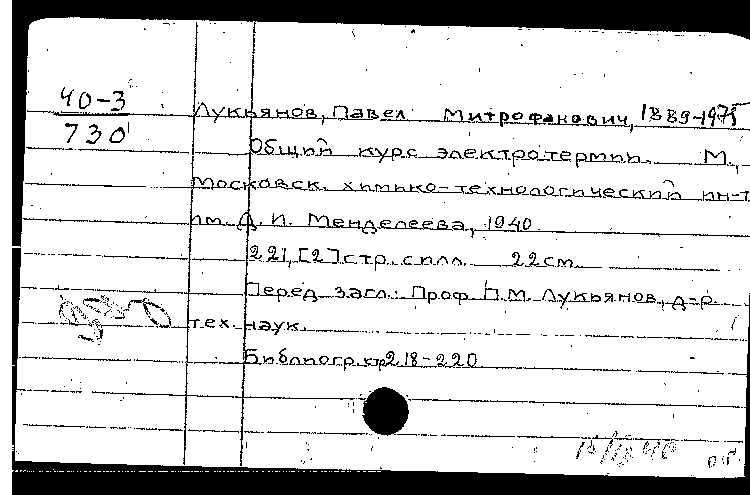 40-3
730
Лукьянов, Павел Митрофанович, 1889-1975
Общий курс электротермии. М.,
Московск. химико-технологический ин-т
им. Д. И. Менделеева, 1940.
221, [2] стр. с илл. 22 см.
Перед загл.: Проф. П.М. Лукьянов, д-р
тех. наук.
Библиогр. стр. 218-220